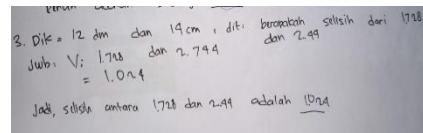 3. Dik = 12 dm dan 14 cm, dit: berapakah selisih dari 1.728
dan 2.44
Jwb: V: 1.728 dan 2.744
= 1.024
Jadi, selisih antara 1.728 dan 2.44 adalah 1.024